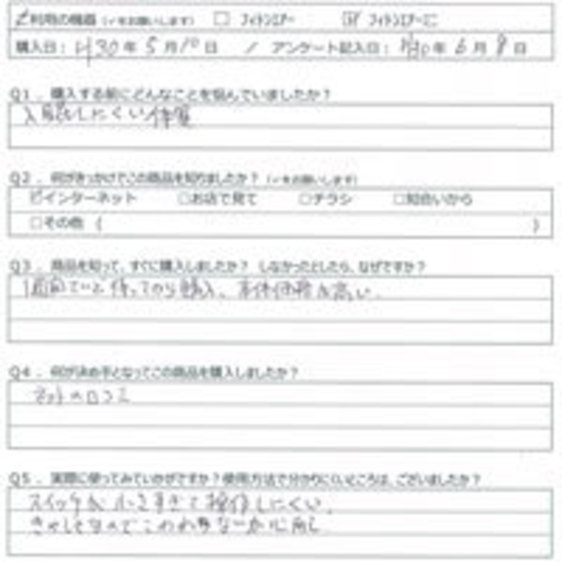 ご利用の機器(✓をお願いします) □ フィトンエアー ☑ フィトンエアーミニ
購入日: H30年 5月10日 / アンケート記入日: H30年 6月 9日
Q1. 購入する前にどんなことを悩んでいましたか?
入眠しにくい体質
Q2. 何がきっかけでこの商品を知りましたか? (✓をお願いします)
☑インターネット □お店で見て □チラシ □知合いから
□その他 ( )
Q3. 商品を知って、すぐに購入しましたか? しなかったとしたら、なぜですか?
1週間ていど待ってから購入、本体価格が高い。
Q4. 何が決め手となってこの商品を購入しましたか?
ネットの口コミ
Q5. 実際に使ってみていかがですか?使用方法で分かりにくいところは、ございましたか?
スイッチが小さすぎて操作しにくい。
きゃしゃなのでこわれないか心配